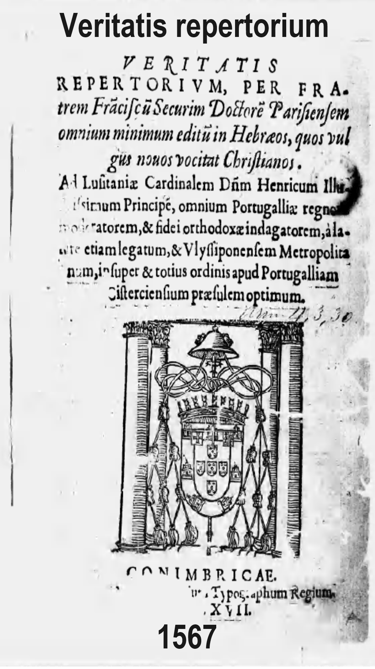 Veritatis repertorium
VERITATIS
REPERTORIVM, PER FRA-
trem Frãciscũ Securim Doctorẽ Parisiensem
omnium minimum editũ in Hebræos, quos vul
gus nouos vocitat Christianos.
Ad Lusitaniæ Cardinalem Dñm Henricum Illu-
Principẽ, omnium Portugalliæ
& fidei orthodoxæ indagatorem, à la-
etiam legatum, & Vlyssiponensem Metropolita
num, insuper & totius ordinis apud Portugalliam
Cisterciensium præsulem optimum.
CONIMBRICAE.
Regium.
XVII.
1567